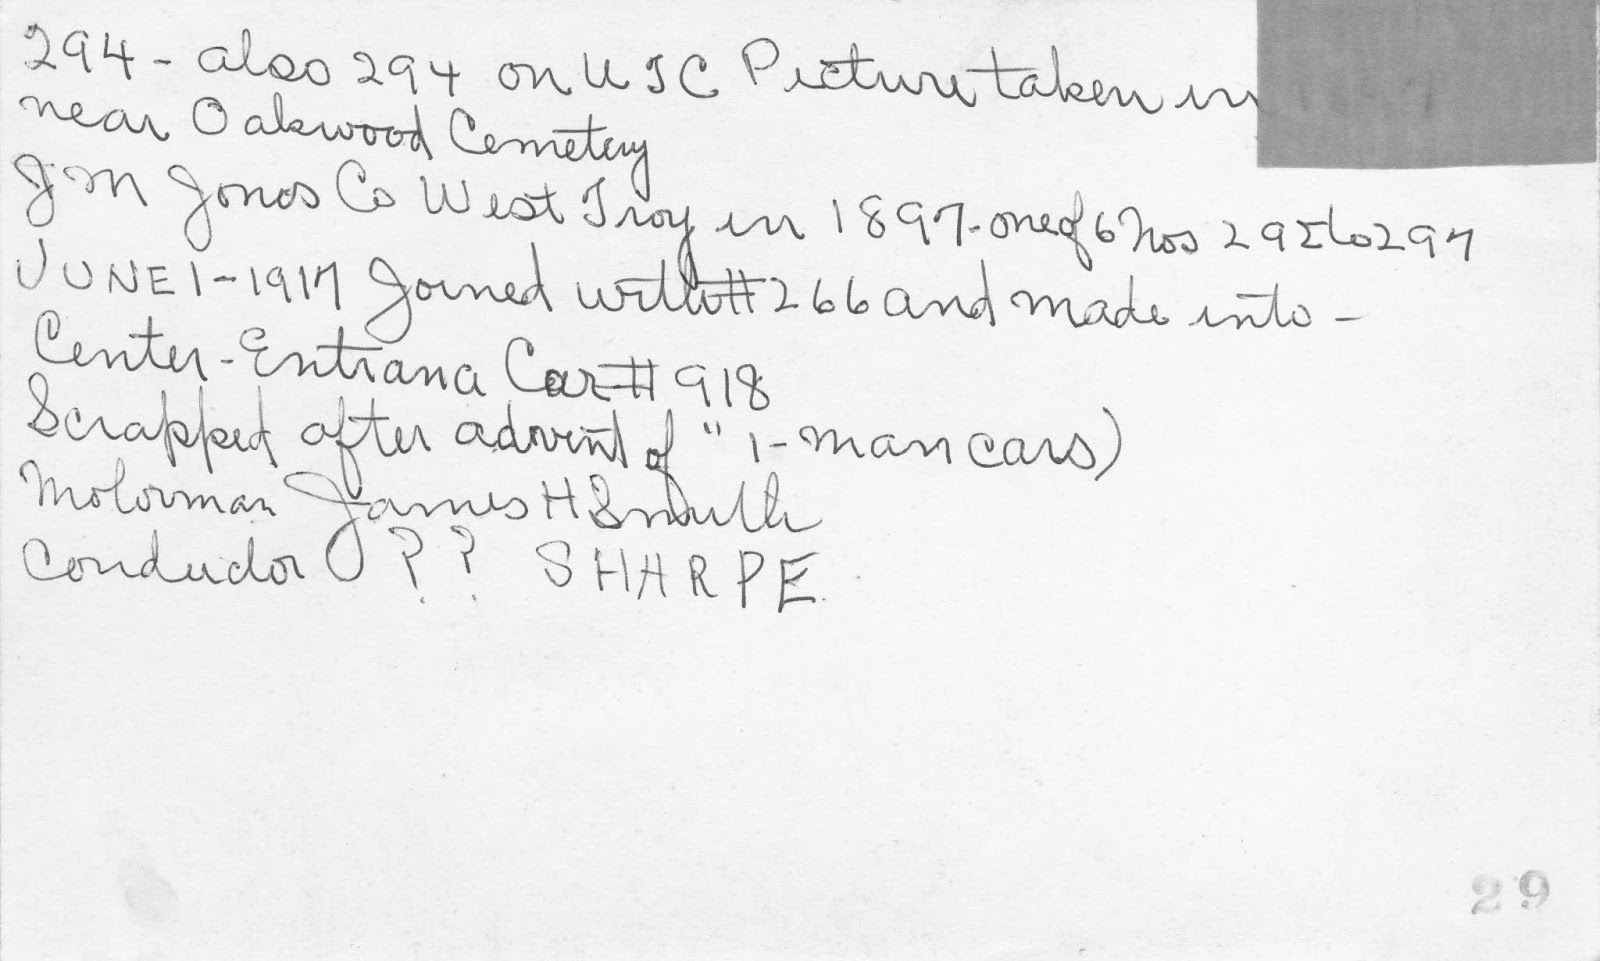 294 - also 294 on UTC Picture taken in
near Oakwood Cemetery
J M Jones Co West Troy in 1897 - one of 6 Nos 292 to 297
JUNE 1 - 1917 Joined with # 266 and made into -
Center - Entrana Car # 918
Scrapped after advent of " 1 - man cars)
Motorman James H Smith
Conductor ? ? SHARPE
29